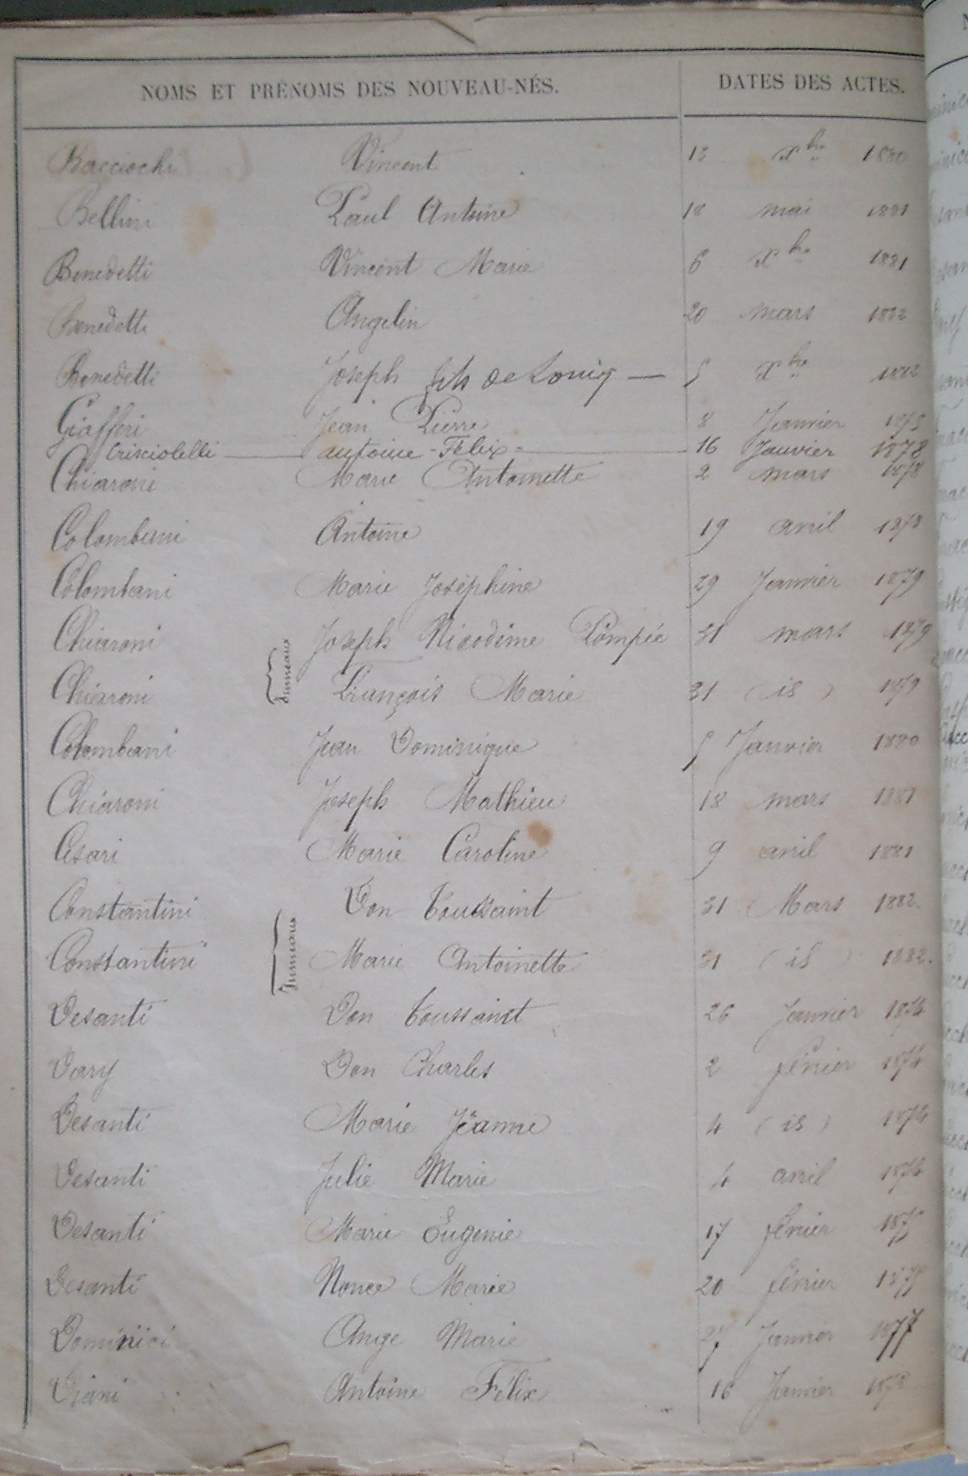 NOMS ET PRÉNOMS DES NOUVEAU-NÉS. DATES DES ACTES.
Bacciochi Vincent 13 Xbre 1880
Bellini Paul Antoine 18 mai 1881
Benedetti Vincent Marie 6 Xbre 1881
Benedetti Angelin 20 mars 1882
Benedetti Joseph fils de Louis — 5 Xbre 1882
Giafferi Jean Pierre 8 Janvier 1875
Crisciolelli antoine-Félix- 16 Janvier 1878
Chiaroni Marie Antoinette 2 mars 1878
Colombani Antoine 19 avril 1878
Colombani Marie Joséphine 29 Janvier 1879
Chiaroni Joseph Nicodème Pompée 31 mars 1879
Jumeaux
Chiaroni François Marie 31 (id) 1879
Colombani Jean Dominique 5 Janvier 1880
Chiaroni Joseph Mathieu 18 mars 1881
Cesari Marie Caroline 9 avril 1881
Constantini Don Toussaint 31 Mars 1882.
Jumeaux
Constantini Marie Antoinette 31 (id) 1882.
Desanti Don Toussaint 26 Janvier 1874
Dary Don Charles 2 février 1874
Desanti Marie Jeanne 4 (id) 1874
Desanti Julie Marie 4 avril 1874
Desanti Marie Eugenie 17 février 1875
Desanti Nonce Marie 20 février 1875
Dominici Ange Marie 27 Janvier 1877
Viani Antoine Félix 16 Janvier 1878